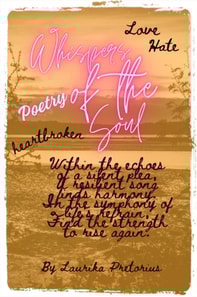 Love
Hate
Whispers
of the
Soul
Poetry
heartbroken
Within the echoes
of a silent plea,
A resilient song
finds harmony.
In the symphony of
life's refrain,
Find the strength
to rise again.
By Laurika Pretorius